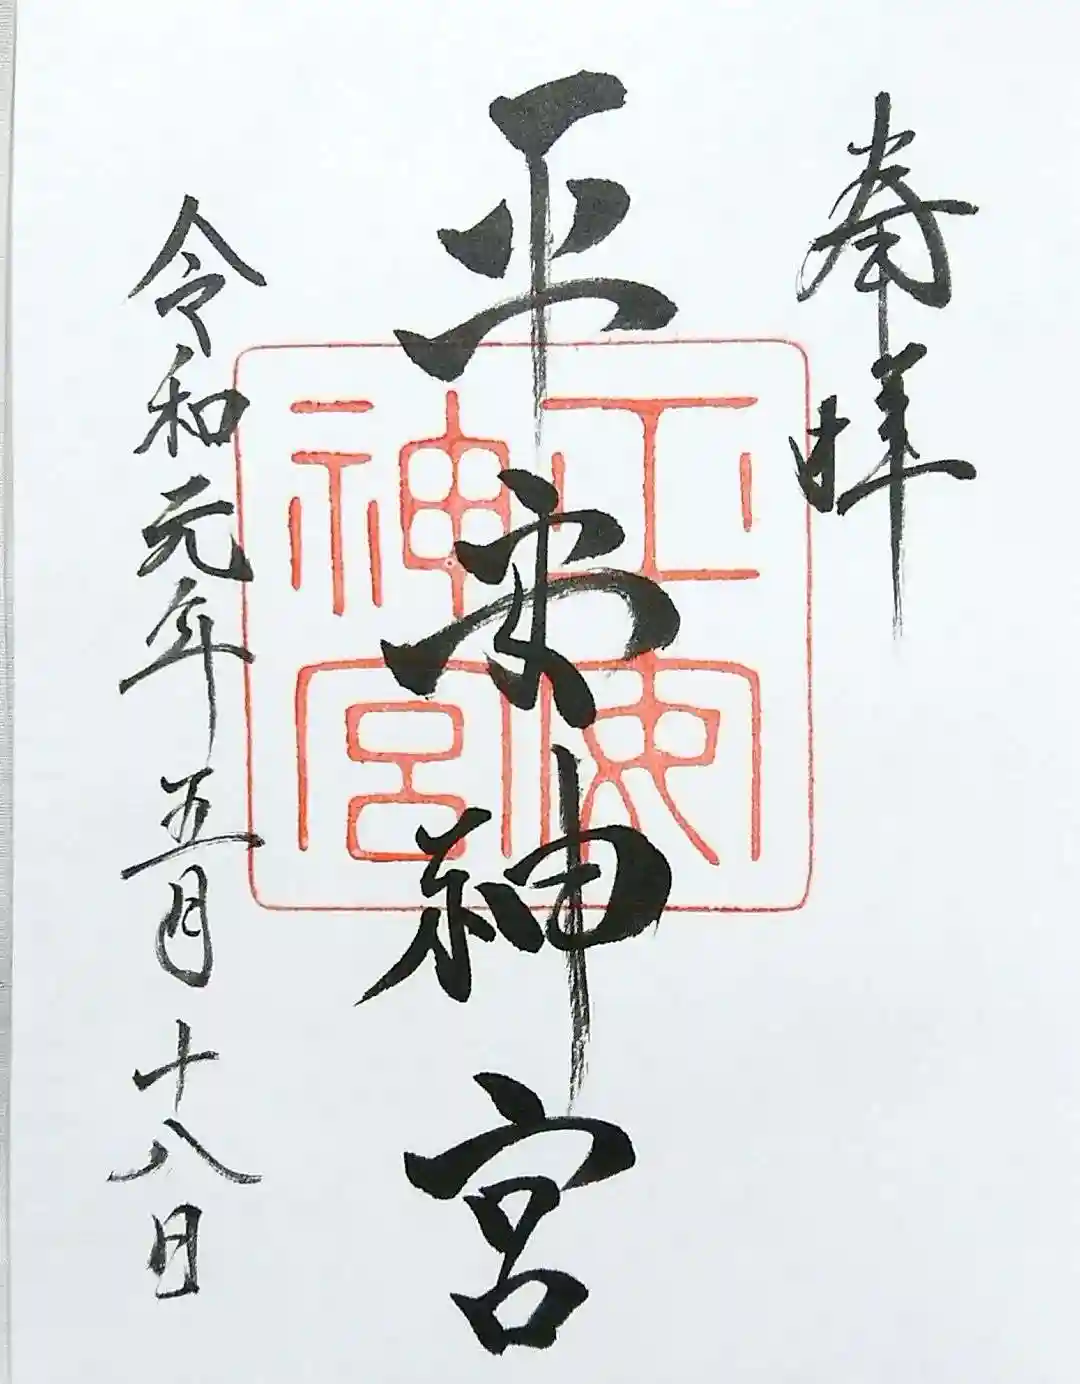 奉拝
平安神宮
平安神宮
令和元年五月十八日